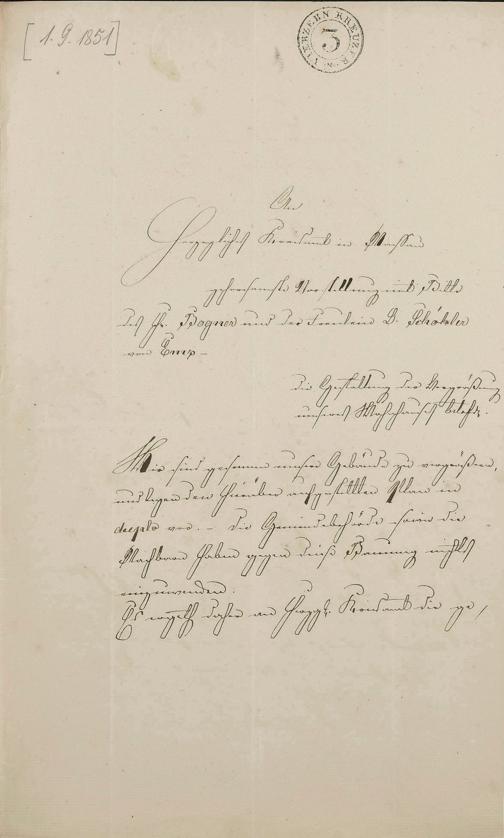 [1.9.1851]
VIERZEHN KREUZER
3
An
Herzogliches Kreisamt in Nassau
gehorsamste Vorstellung mit Bitte
des Fr. Bogner und der Fräulein B. Schößler
von Emp
die Gestattung der Vergrößerung
unseres Wohnhauses betr.
Wir sind gesonnen unser Gebäude zu vergrößern,
und legen den hierüber aufgestellten Plan in
duplo vor. – Die Gemeindebehörde sowie die
Nachbarn haben gegen diese Bauung nichts
einzuwenden.
Es ergeht daher an Herzogl. Kreisamt die ge,